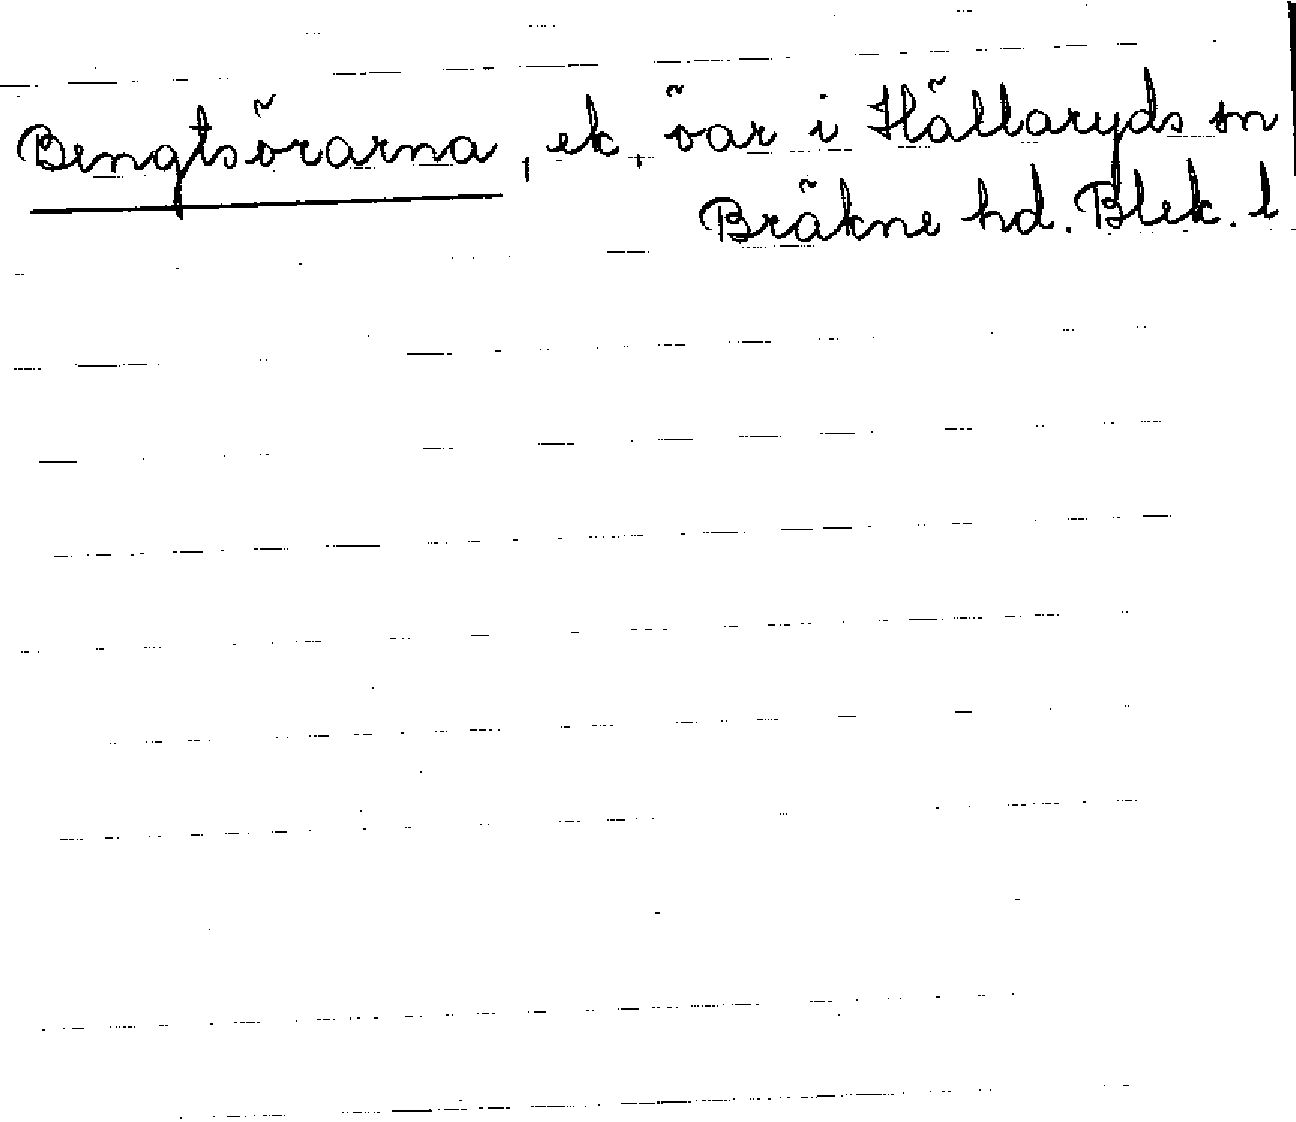 Bengtsörarna, ek. öar i Hällaryds sn
Bräkne hd. Blek. l